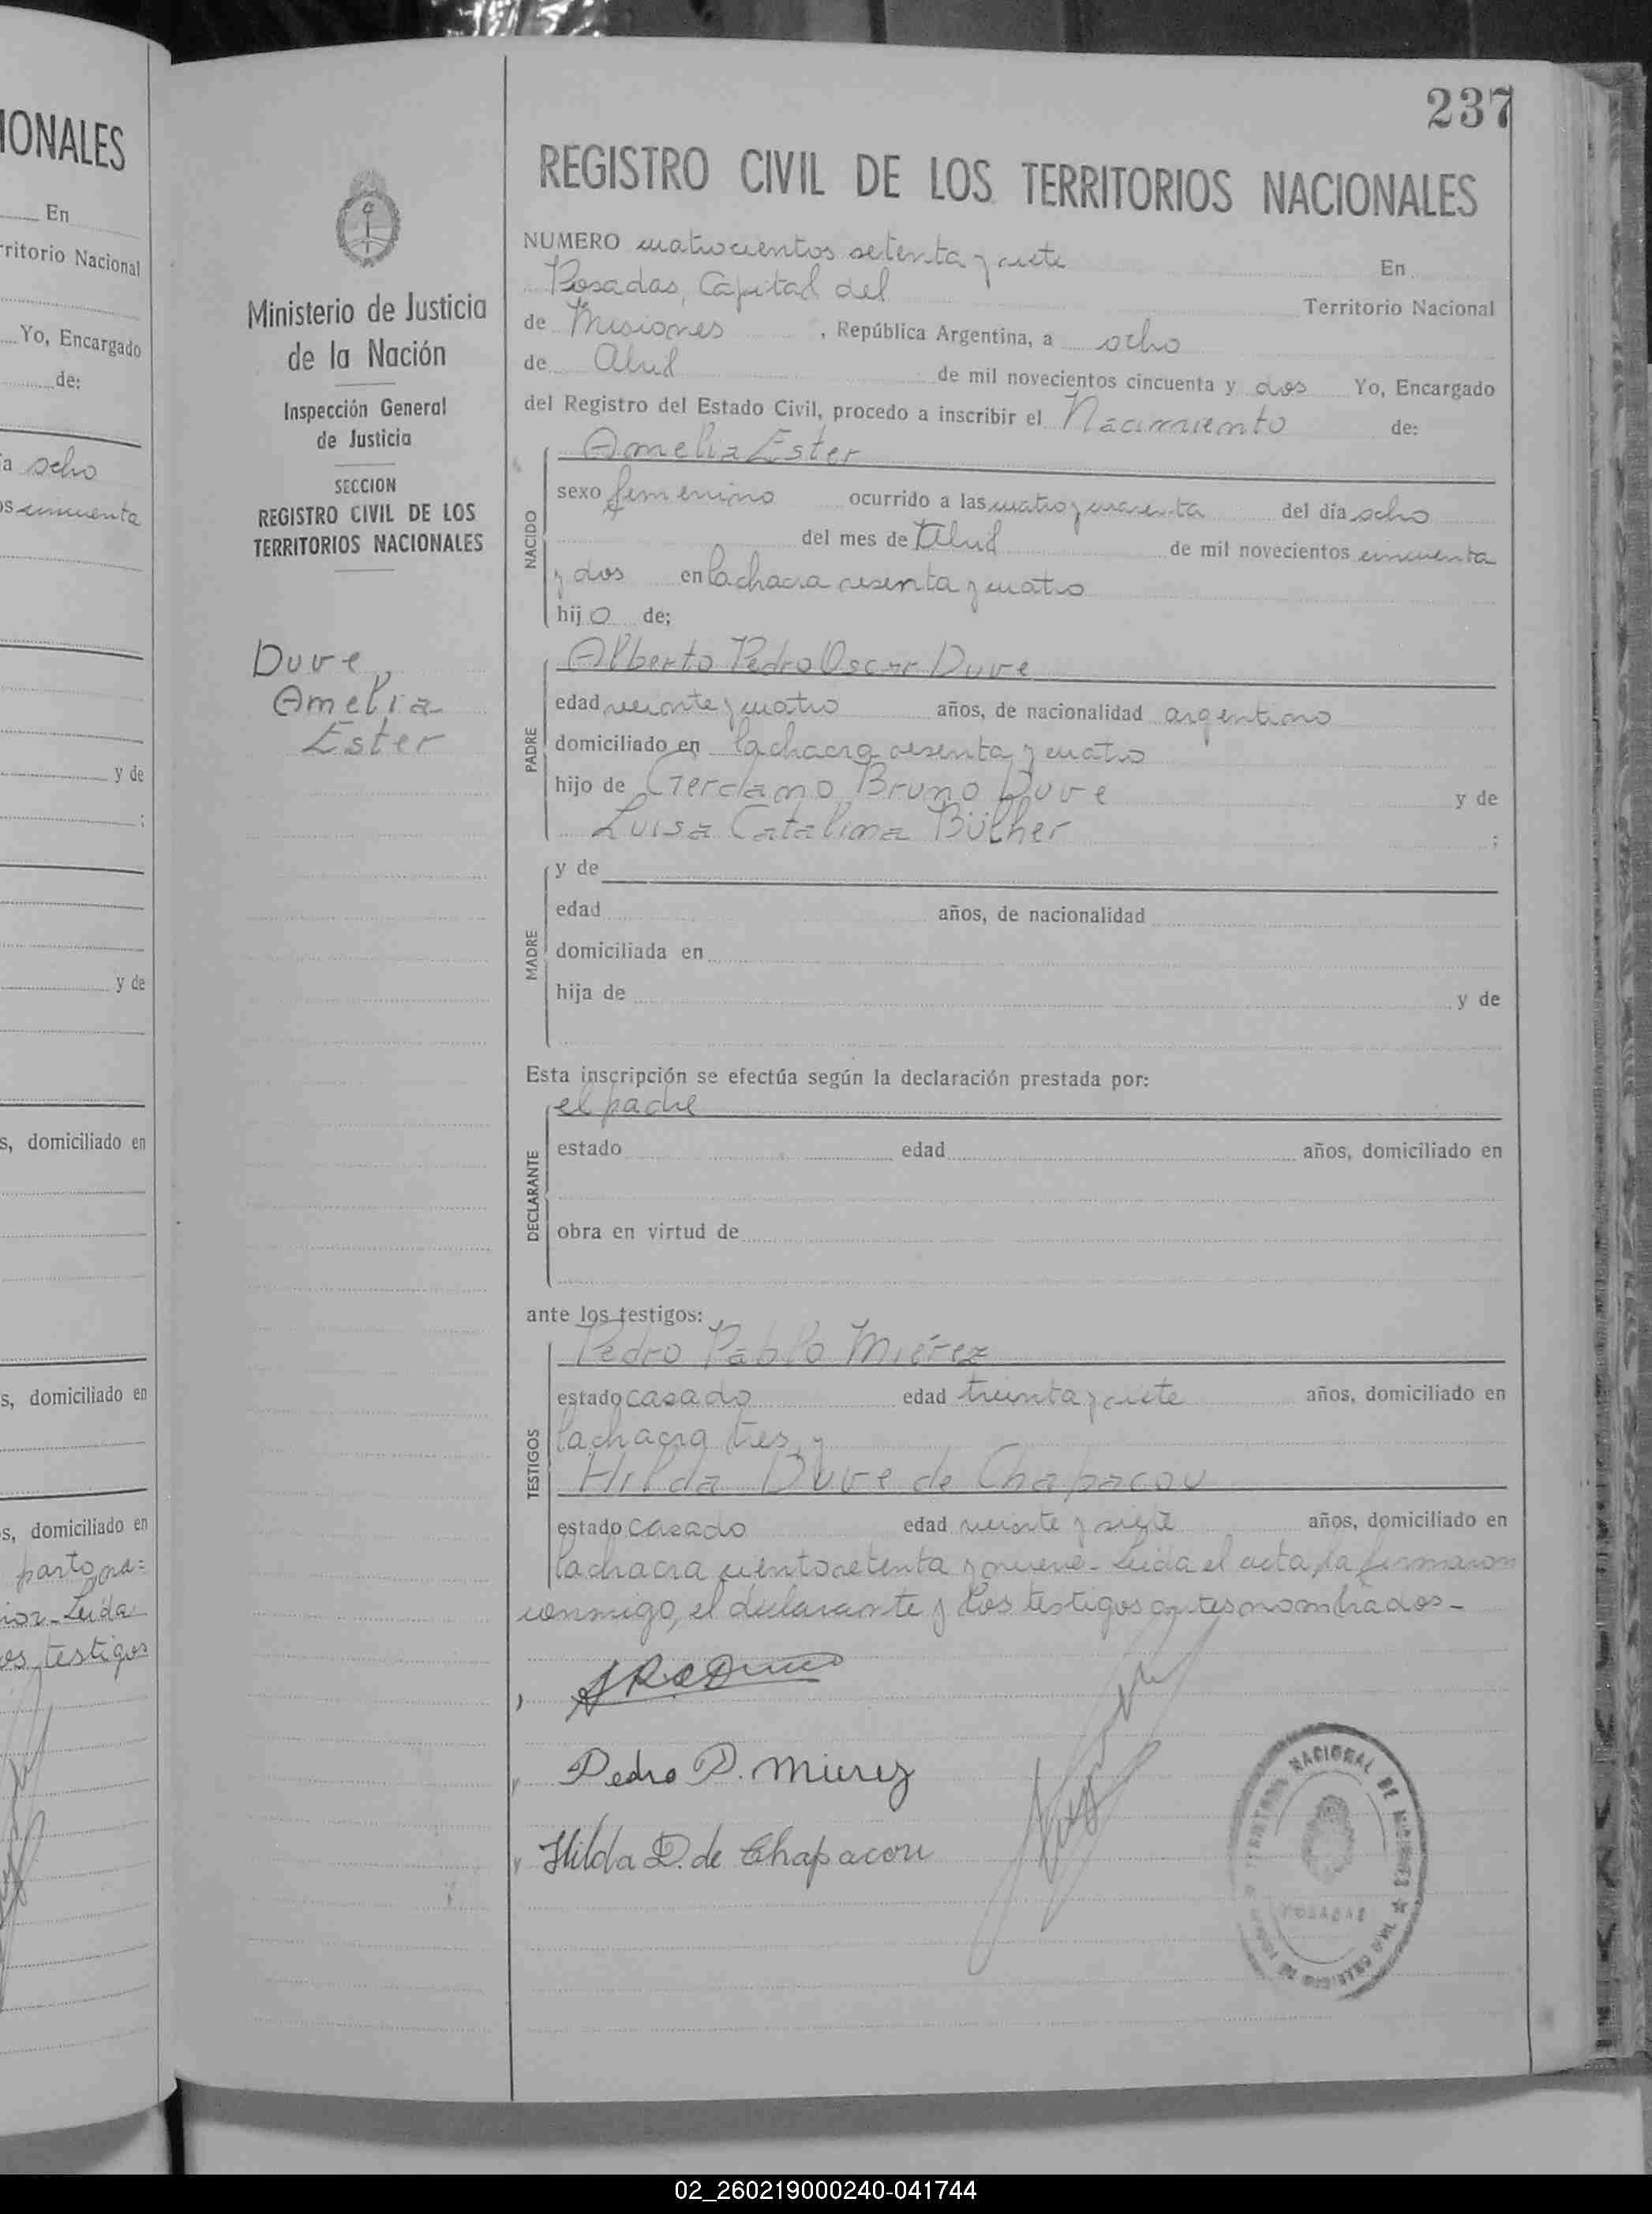 IONALES
En
rritorio Nacional
Yo, Encargado
de:
ía ocho
os cincuenta
y de
;
y de
s, domiciliado en
s, domiciliado en
s, domiciliado en
parto, na=
Leida
os testigos
237
Ministerio de Justicia
de la Nación
Inspección General
de Justicia
SECCION
REGISTRO CIVIL DE LOS
TERRITORIOS NACIONALES
Duve
Amelia
Ester
REGISTRO CIVIL DE LOS TERRITORIOS NACIONALES
NUMERO cuatrocientos setenta y siete En
Posadas, Capital del Territorio Nacional
de Misiones, República Argentina, a ocho
de Abril de mil novecientos cincuenta y dos Yo, Encargado
del Registro del Estado Civil, procedo a inscribir el Nacimiento de:
NACIDO
Amelia Ester
sexo femenino ocurrido a las cuatro y cuarenta del día ocho
del mes de Abril de mil novecientos cincuenta
y dos en la chacra sesenta y cuatro
hijo de;
PADRE
Alberto Pedro Oscar Duve
edad veinte y cuatro años, de nacionalidad argentino
domiciliado en la chacra sesenta y cuatro
hijo de Gerdamo Bruno Duve y de
Luisa Catalina Bülher ;
MADRE
y de
edad años, de nacionalidad
domiciliada en
hija de y de
Esta inscripción se efectúa según la declaración prestada por:
DECLARANTE
el padre
estado edad años, domiciliado en
obra en virtud de
ante los testigos:
TESTIGOS
Pedro Pablo Miérez
estado casado edad treinta y siete años, domiciliado en
la chacra tres, y
Hilda Duve de Chapacou
estado casado edad veinte y siete años, domiciliado en
la chacra ciento setenta y nueve - Leida el acta, la firmaron
conmigo, el declarante y los testigos antes nombrados -
Pedro P. Mierez
Hilda D. de Chapacou
NACIONAL DE MISIONES
POSADAS
02_260219000240-041744